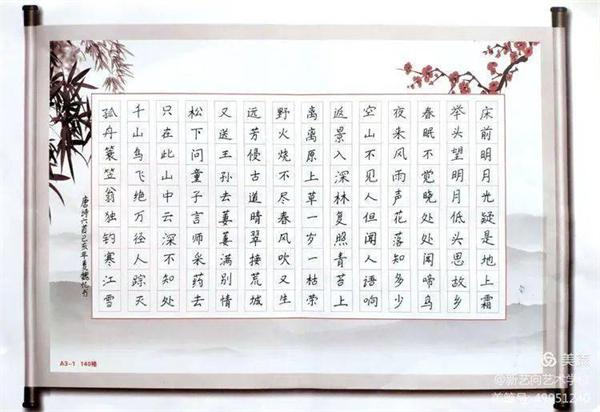 床前明月光疑是地上霜
举头望明月低头思故乡
春眠不觉晓处处闻啼鸟
夜来风雨声花落知多少
空山不见人但闻人语响
返景入深林复照青苔上
离离原上草一岁一枯荣
野火烧不尽春风吹又生
远芳侵古道晴翠接荒城
又送王孙去萋萋满别情
松下问童子言师采药去
只在此山中云深不知处
千山鸟飞绝万径人踪灭
孤舟蓑笠翁独钓寒江雪
唐诗六首己亥年夏魏忆书
A3-1 140格
美篇
@新艺向艺术学校